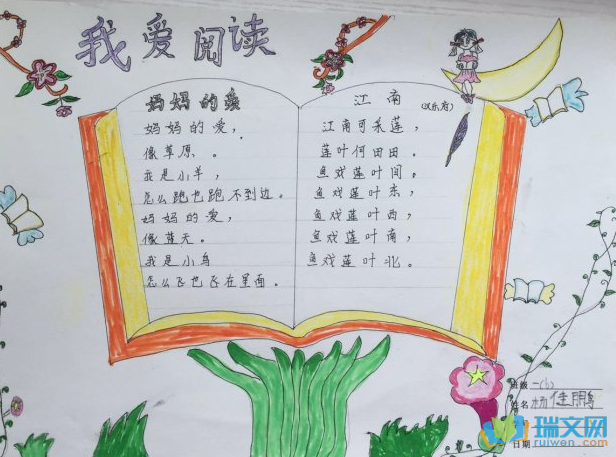 我爱阅读
妈妈的爱
妈妈的爱，
像草原。
我是小羊，
怎么跑也跑不到边。
妈妈的爱，
像蓝天。
我是小鸟
怎么飞也飞在里面。
江南 (汉乐府)
江南可采莲，
莲叶何田田。
鱼戏莲叶间。
鱼戏莲叶东，
鱼戏莲叶西，
鱼戏莲叶南，
鱼戏莲叶北。
班级 一(6)
姓名
日期
瑞文网
ruiwen.com